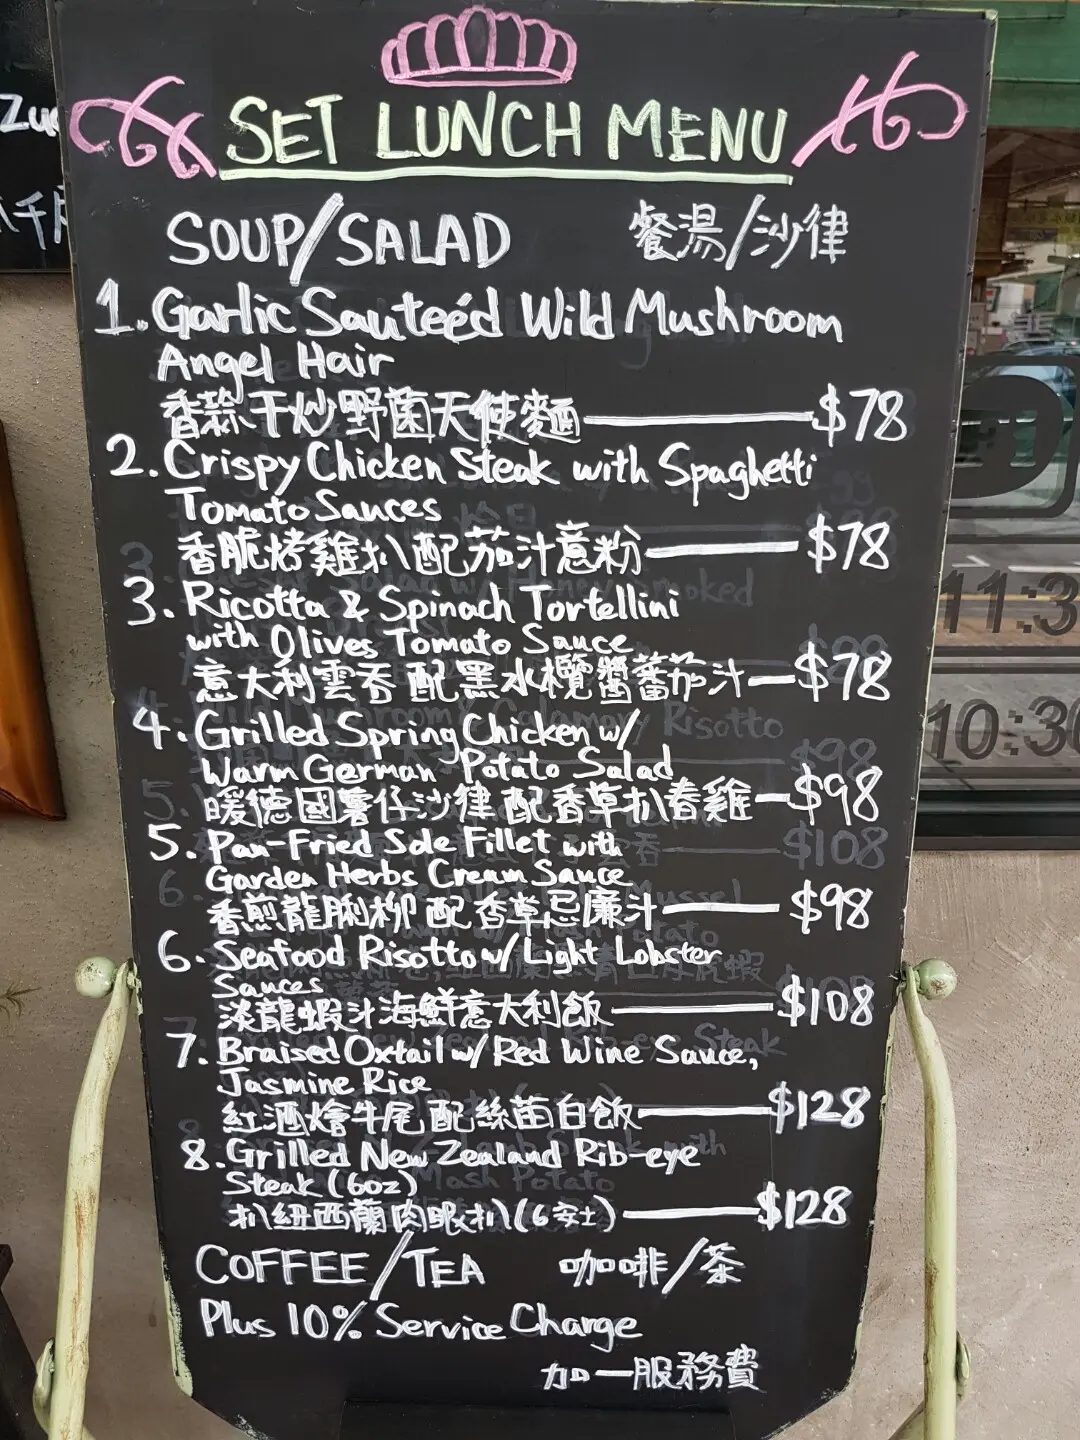 SET LUNCH MENU
SOUP/SALAD 餐湯/沙律
1. Garlic Sauteéd Wild Mushroom
Angel Hair
香蒜干炒野菌天使麵 $78
2. Crispy Chicken Steak with Spaghetti
Tomato Sauces
香脆烤雞扒配茄汁意粉 $78
3. Ricotta & Spinach Tortellini
with Olives Tomato Sauce
意大利雲吞配黑水欖醬蕃茄汁 $78
4. Grilled Spring Chicken w/
Warm German Potato Salad
暖德國薯仔沙律配香草扒春雞 $98
5. Pan-Fried Sole Fillet with
Garden Herbs Cream Sauce
香煎龍脷柳配香草忌廉汁 $98
6. Seafood Risotto w/ Light Lobster
Sauces
淡龍蝦汁海鮮意大利飯 $108
7. Braised Oxtail w/ Red Wine Sauce,
Jasmine Rice
紅酒燴牛尾配絲苗白飯 $128
8. Grilled New Zealand Rib-eye
Steak (6oz)
扒紐西蘭肉眼扒(6安士) $128
COFFEE/TEA 咖啡/茶
Plus 10% Service Charge
加一服務費
11:3
10:30